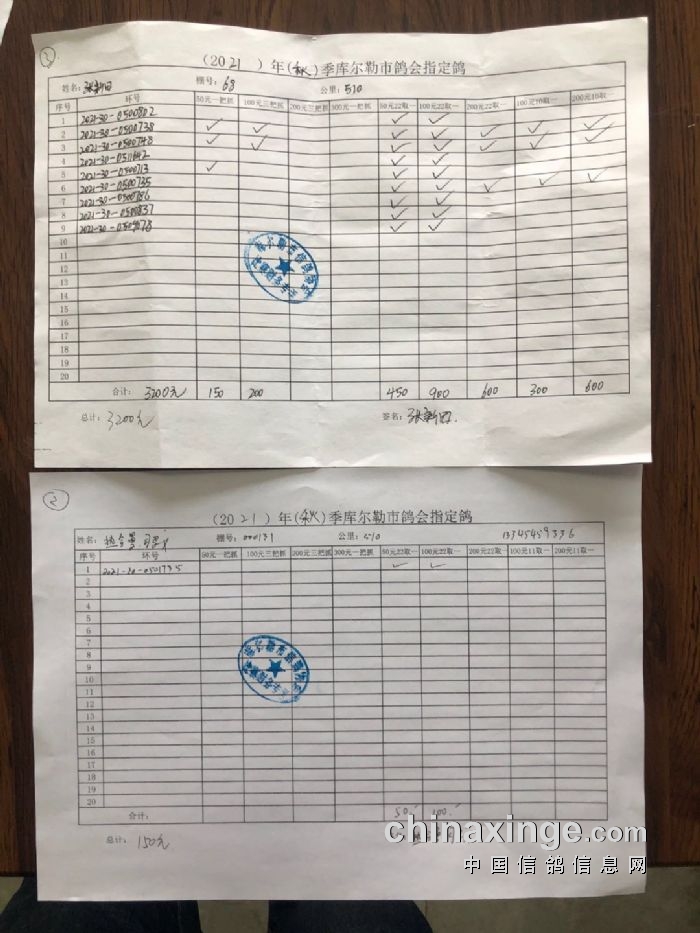 ①
（2021）年（秋）季库尔勒市鸽会指定鸽
姓名：张新田 棚号：68 公里：510
序号 环号 50元一把抓 100元三把抓 200元三把抓 300元一把抓 50元22取一 100元22取一 200元22取一 100元10取一 200元10取一
1 2021-30-0500802 ✓ ✓
2 2021-30-0500738 ✓ ✓ ✓ ✓ ✓ ✓ ✓
3 2021-30-0500748 ✓ ✓ ✓ ✓ ✓ ✓ ✓
4 2021-30-0511642 ✓ ✓
5 2021-30-0500713 ✓ ✓ ✓
6 2021-30-0500735 ✓ ✓ ✓ ✓ ✓
7 2021-30-0500786 ✓ ✓
8 2021-30-0500837 ✓ ✓
9 2021-30-0505078 ✓ ✓
10
11
12
13
14
15
16
17
18
19
20
合计： 3200元 150 200 450 900 600 300 600
总计： 3200元 签名：张新田
②
（2021）年（秋）季库尔勒市鸽会指定鸽
姓名： 棚号：000131 公里：510 13345459336
序号 环号 50元一把抓 100元三把抓 200元三把抓 300元一把抓 50元22取一 100元22取一 200元22取一 100元11取一 200元11取一
1 2021-30-0501735 ✓ ✓
2
3
4
5
6
7
8
9
10
11
12
13
14
15
16
17
18
19
20
合计： 50 100
总计： 150元
chinaxinge.com
中国信鸽信息网